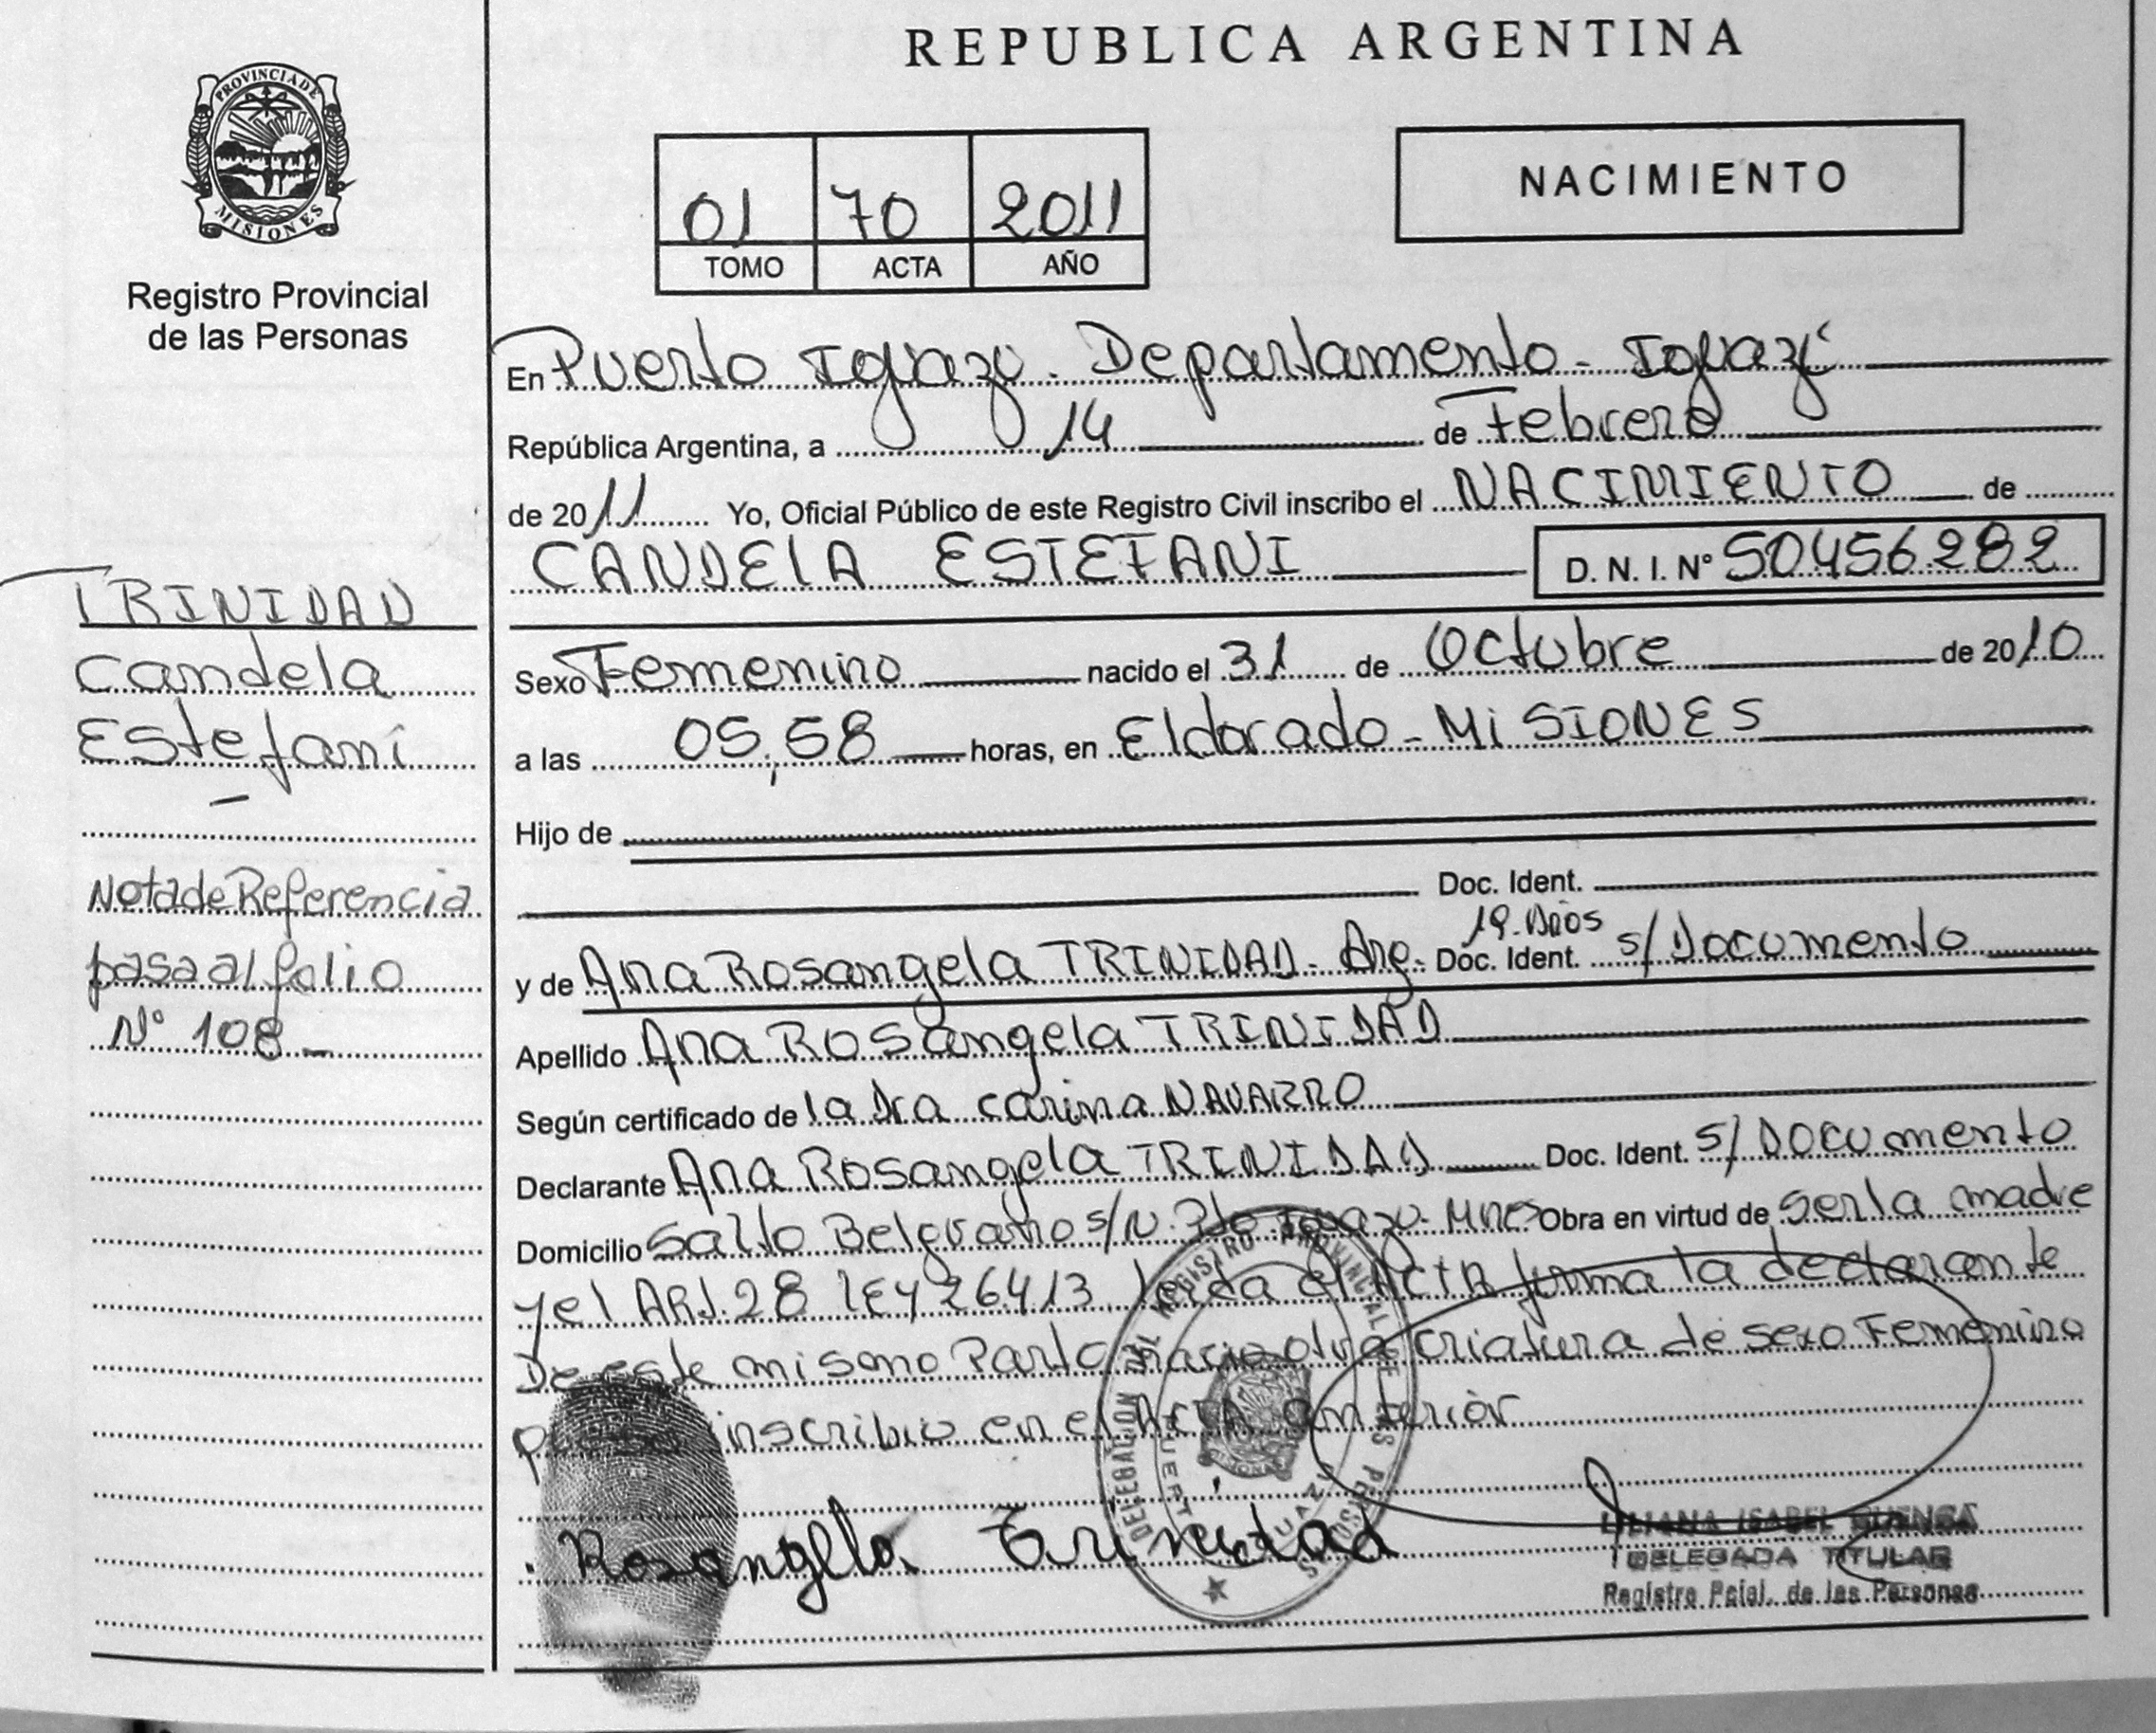 REPUBLICA ARGENTINA
PROVINCIA DE
MISIONES
Registro Provincial
de las Personas
01 70 2011
TOMO ACTA AÑO
NACIMIENTO
En Puerto Iguazu. Departamento - Iguazú
República Argentina, a 14 de Febrero
de 2011 Yo, Oficial Público de este Registro Civil inscribo el NACIMIENTO de
CANDELA ESTEFANI D. N. I. Nº 50456.282
Sexo Femenino nacido el 31 de Octubre de 2010
a las 05,58 horas, en Eldorado - MiSIONES
Hijo de
Doc. Ident.
19. Años
y de Ana Rosangela TRINIDAD - Arg. Doc. Ident. s/Documento
Apellido Ana Rosangela TRINIDAD
Según certificado de la Dra Carina NAVARRO
Declarante Ana Rosangela TRINIDAD Doc. Ident. s/Documento
Domicilio Salto Belgrano s/N. Pto Iguazu - Mnes Obra en virtud de ser la madre
y el ART. 28 LEY 26413 leida el ACTA firma la declarante
De este mismo Parto nacio otra criatura de sexo Femenino
inscribio en el ACTA anterior
Rosangela Trinidad
DELEGACION DEL REGISTRO PROVINCIAL DE LAS PERSONAS
LILIANA ISABEL CUENCA
DELEGADA TITULAR
Registro Pcial. de las Personas
TRINIDAD
Candela
Estefani
Nota de Referencia
pasa al folio
Nº 108